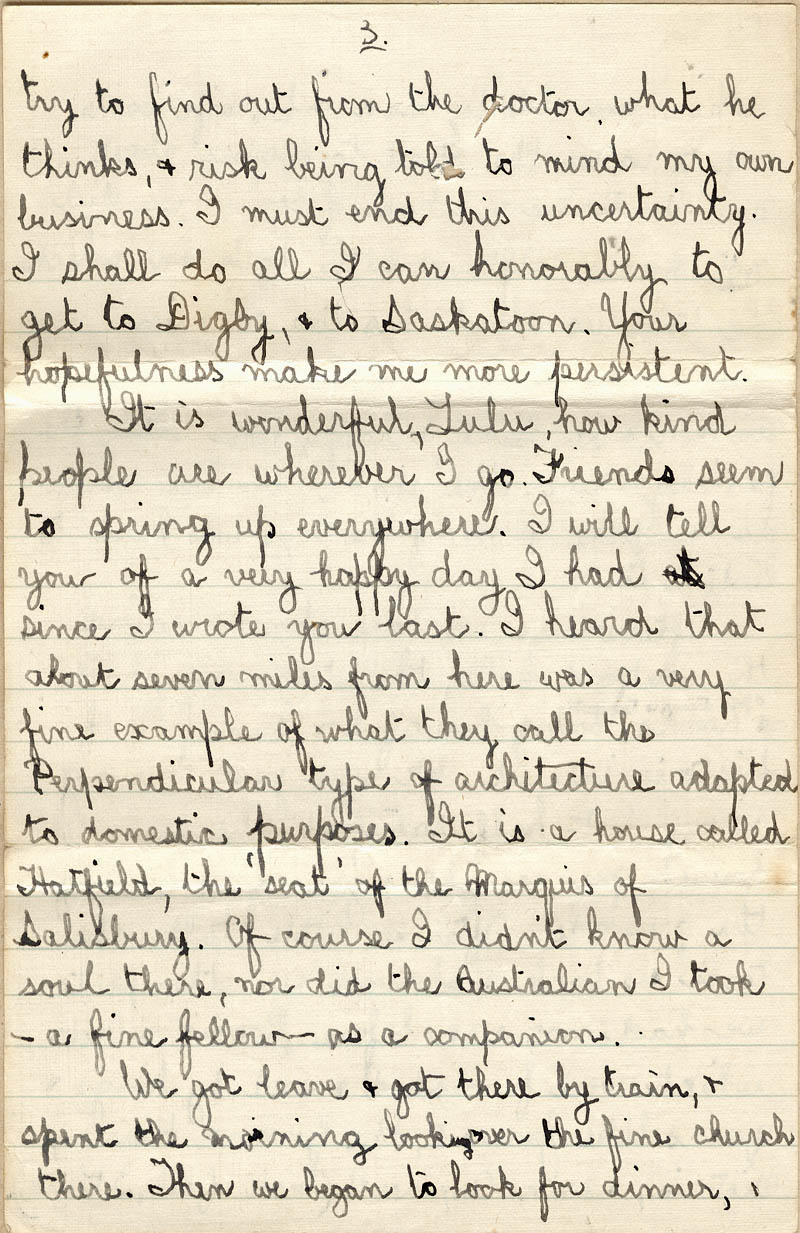 3.
try to find out from the doctor what he
thinks, & risk being told to mind my own
business. I must end this uncertainty.
I shall do all I can honorably to
get to Digby, & to Saskatoon. Your
hopefulness make me more persistent.
It is wonderful, Lulu, how kind
people are wherever I go. Friends seem
to spring up everywhere. I will tell
you of a very happy day I had at
since I wrote you last. I heard that
about seven miles from here was a very
fine example of what they call the
Perpendicular type of architecture adapted
to domestic purposes. It is a house called
Hatfield, the 'seat' of the Marquis of
Salisbury. Of course I didn't know a
soul there, nor did the Australian I took
– a fine fellow – as a companion.
We got leave & got there by train, &
spent the morning looking over the fine church
there. Then we began to look for dinner,